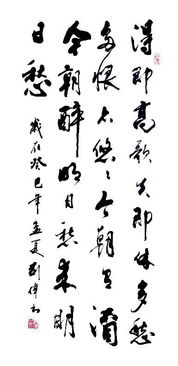 得即高歌失即休多愁
多恨亦悠悠今朝有酒
今朝醉明日愁来明
日愁
岁在癸巳年孟夏刘伟书